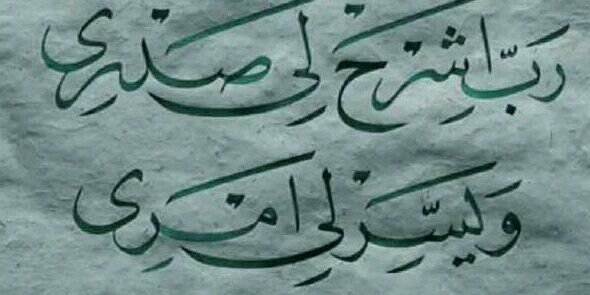 رَبِّ اشرَح لِي صَدرِي
وَيَسِّر لِي امرِي